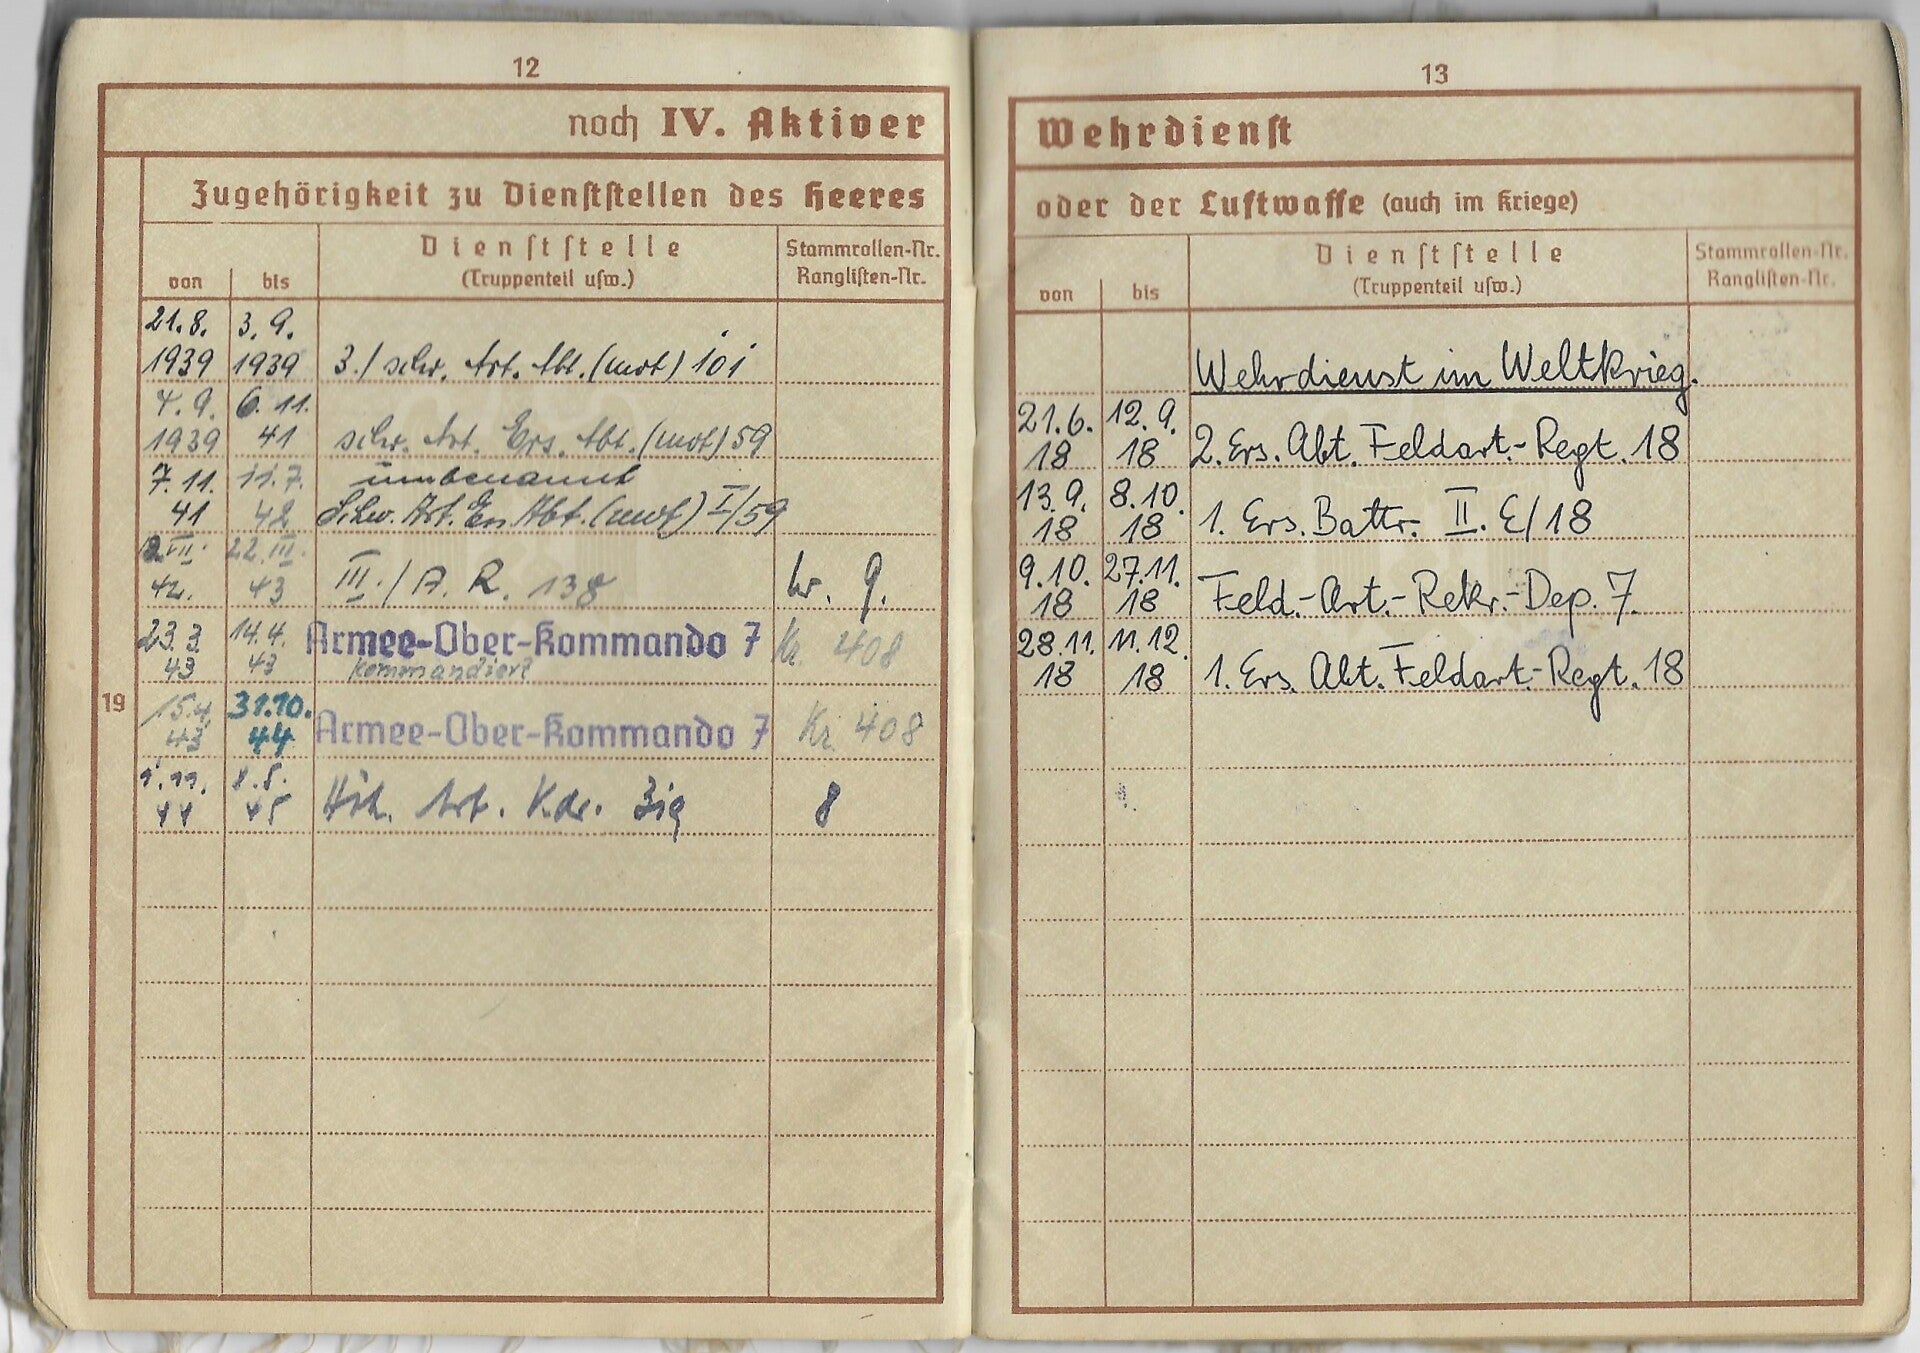 12
noch IV. Aktiver
Zugehörigkeit zu Dienststellen des Heeres
von
bis
Dienststelle
(Truppenteil usw.)
Stammrollen-Nr.
Ranglisten-Nr.
21.8. 3.9.
1939 1939 3./ schw. Art. Abt. (mot) 101
4.9. 6.11.
1939 41 schw. Art. Ers. Abt. (mot) 59
7.11. 11.7. umbenannt
41 42 Schw. Art. Ers. Abt. (mot) I/59
12.VII. 22.III.
42. 43 III./ A. R. 138 Kr. 9.
23.3. 14.4. Armee-Ober-Kommando 7 Kr. 408
43 43 kommandiert
19
15.4. 31.10.
43 44 Armee-Ober-Kommando 7 Kr. 408
1.11. 8.5.
44 45 Höh. Art. Kdr. 8
13
Wehrdienst
oder der Luftwaffe (auch im Kriege)
von
bis
Dienststelle
(Truppenteil usw.)
Stammrollen-Nr.
Ranglisten-Nr.
Wehrdienst im Weltkrieg.
21.6. 12.9.
18 18 2. Ers. Abt. Feldart.-Regt. 18
13.9. 8.10.
18 18 1. Ers. Battr. II. E/18
9.10. 27.11.
18 18 Feld.-Art.-Rekr.-Dep. 7.
28.11. 11.12.
18 18 1. Ers. Abt. Feldart.-Regt. 18